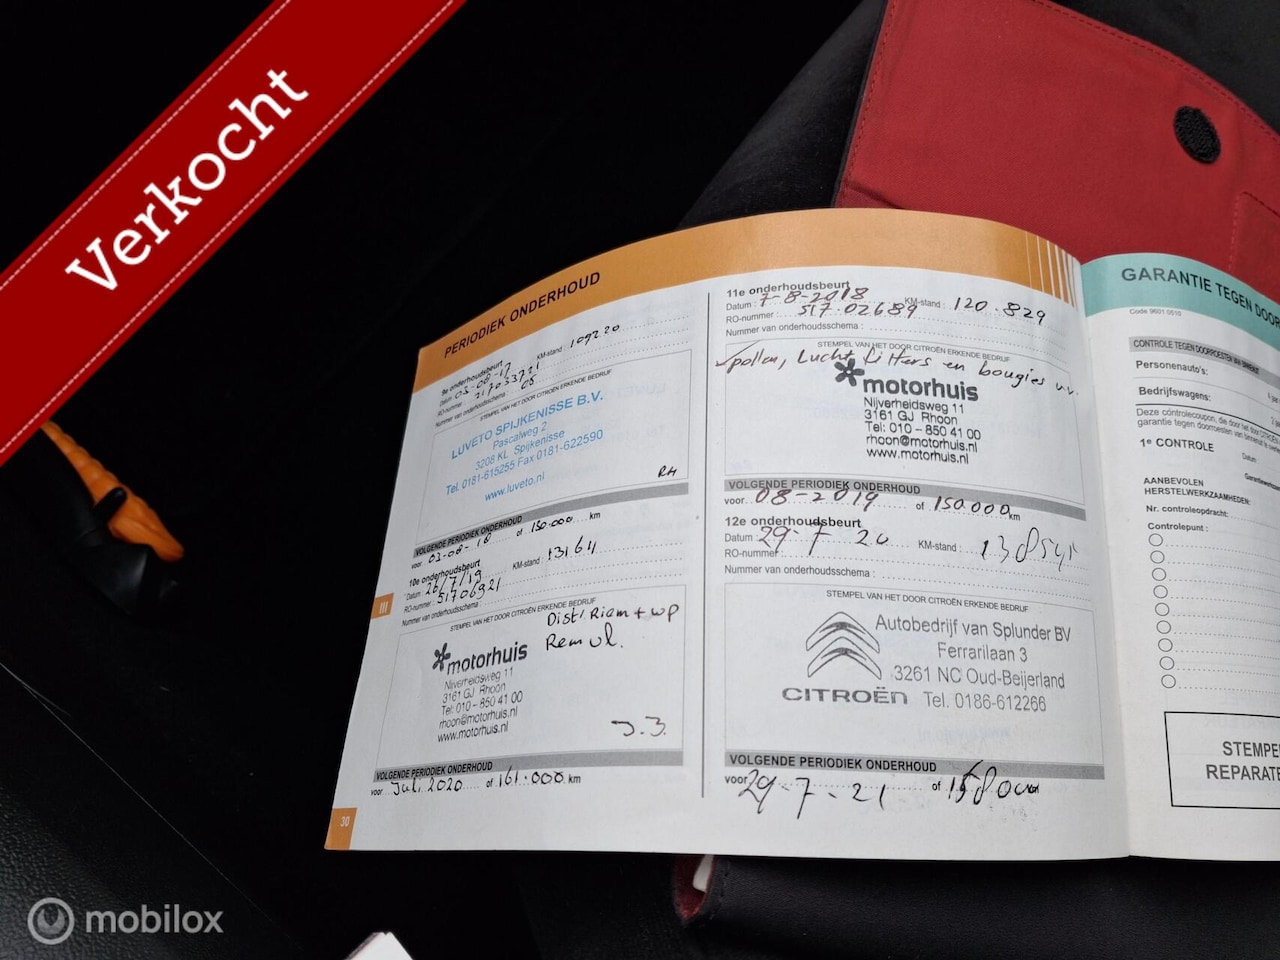 Verkocht
PERIODIEK ONDERHOUD
9e onderhoudsbeurt
Datum : 03-08-17 KM-stand : 109220
RO-nummer : 217033721
Nummer van onderhoudsschema : 05
STEMPEL VAN HET DOOR CITROËN ERKENDE BEDRIJF
LUVETO SPIJKENISSE B.V.
Pascalweg 2
3208 KL Spijkenisse
Tel. 0181-615255 Fax 0181-622590
www.luveto.nl
RH
VOLGENDE PERIODIEK ONDERHOUD
voor 03-08-18 of 150.000 km
10e onderhoudsbeurt
Datum : 26/7/19 KM-stand : 131611
RO-nummer : 51706921
Nummer van onderhoudsschema :
STEMPEL VAN HET DOOR CITROËN ERKENDE BEDRIJF
Distr Riem + wp
Rem vl.
motorhuis
Nijverheidsweg 11
3161 GJ Rhoon
Tel: 010 - 850 41 00
rhoon@motorhuis.nl
www.motorhuis.nl
J.3.
VOLGENDE PERIODIEK ONDERHOUD
voor Juli 2020 of 161.000 km
30
III
11e onderhoudsbeurt
Datum : 7-8-2018 KM-stand : 120.829
RO-nummer : 517.02689
Nummer van onderhoudsschema :
STEMPEL VAN HET DOOR CITROËN ERKENDE BEDRIJF
pollen, Lucht filters en bougies vv.
motorhuis
Nijverheidsweg 11
3161 GJ Rhoon
Tel: 010 - 850 41 00
rhoon@motorhuis.nl
www.motorhuis.nl
VOLGENDE PERIODIEK ONDERHOUD
voor 08-2019 of 150.000 km
12e onderhoudsbeurt
Datum : 29-7 20 KM-stand :
RO-nummer :
Nummer van onderhoudsschema :
STEMPEL VAN HET DOOR CITROËN ERKENDE BEDRIJF
Autobedrijf van Splunder BV
Ferrarilaan 3
3261 NC Oud-Beijerland
CITROËN Tel. 0186-612266
VOLGENDE PERIODIEK ONDERHOUD
voor 29-7-21 of 158000
GARANTIE TEGEN DOOR
Code 9601 0519
CONTROLE TEGEN DOORROESTEN VAN BINNENUIT
Personenauto's:
Bedrijfswagens:
Deze controlecoupon, die door het door CITROËN
garantie tegen doorroesten van binnenuit te
1e CONTROLE
Datum
AANBEVOLEN
HERSTELWERKZAAMHEDEN:
Nr. controleopdracht:
Controlepunt :
STEMPE
REPARATE
mobilox